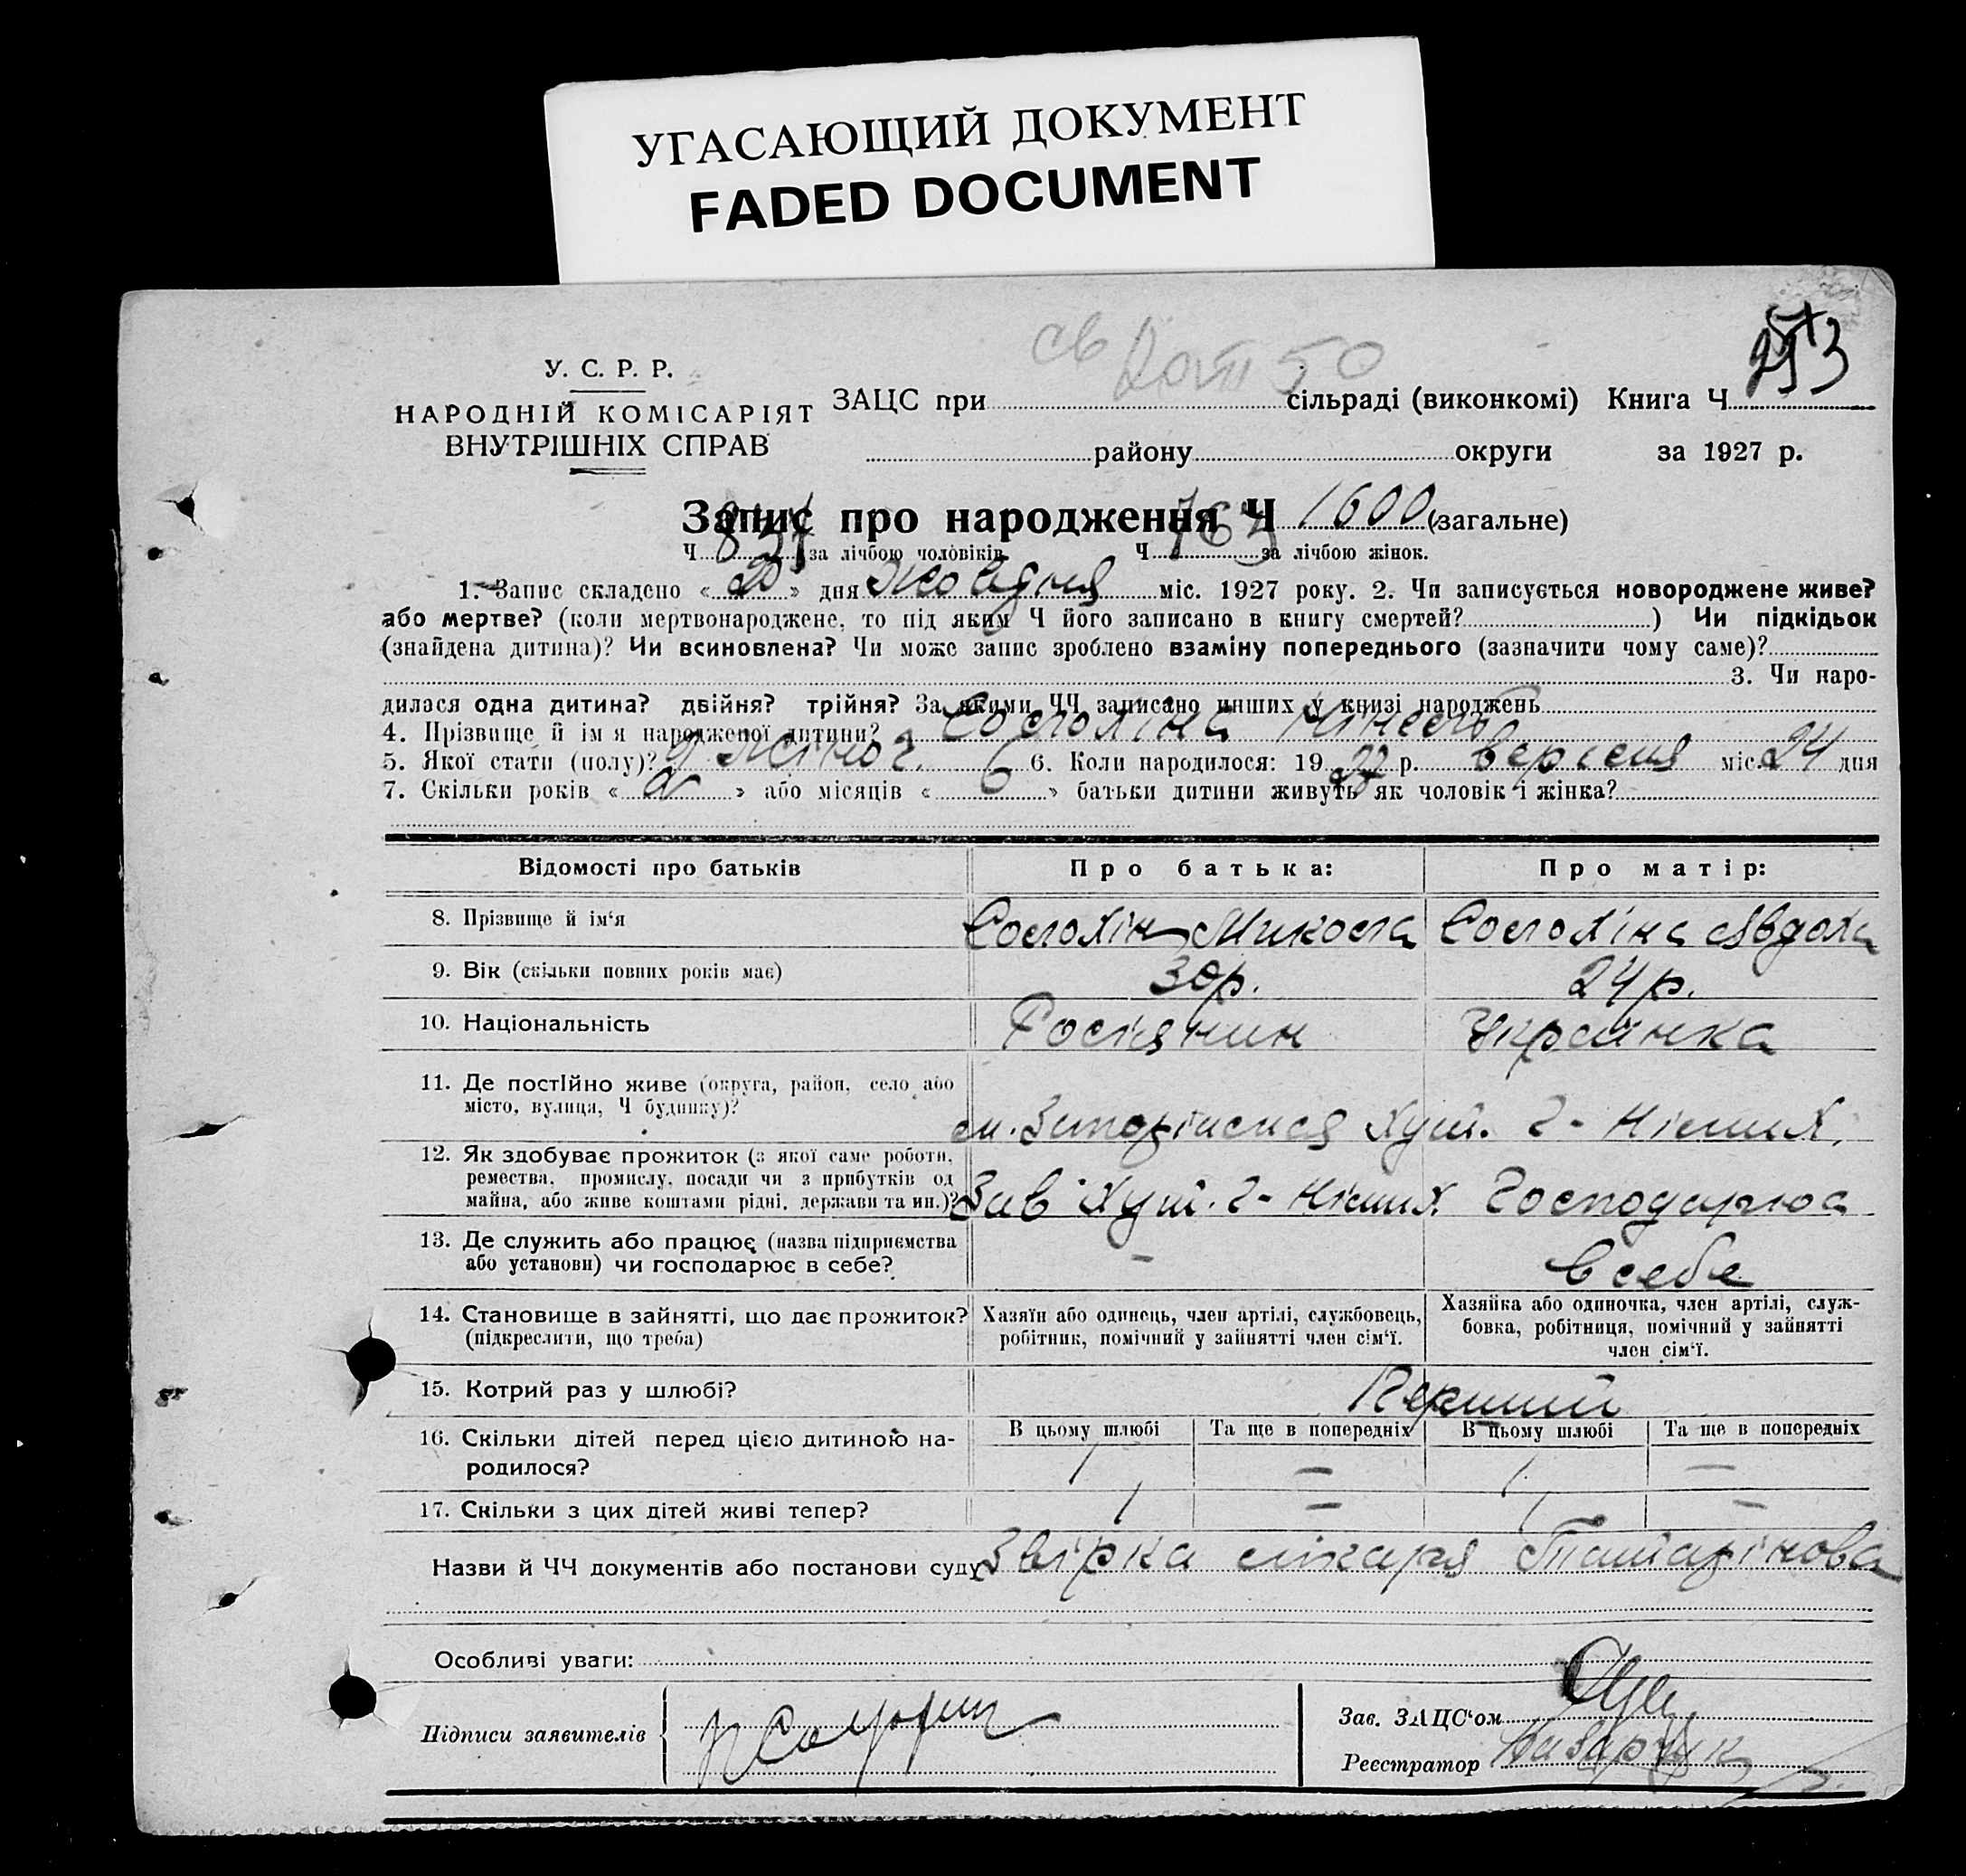 УГАСАЮЩИЙ ДОКУМЕНТ
FADED DOCUMENT
св 50
У. С. Р. Р.
НАРОДНІЙ КОМІСАРІЯТ
ВНУТРІШНІХ СПРАВ
ЗАЦС при сільраді (виконкомі) Книга Ч
району округи за 1927 р.
Запис про народження Ч 1600 (загальне)
Ч 837 за лічбою чоловіків Ч 763 за лічбою жінок.
1. Запис складено «20» дня Жовтня міс. 1927 року. 2. Чи записується новороджене живе?
або мертве? (коли мертвонароджене, то під яким Ч його записано в книгу смертей? ) Чи підкідьок
(знайдена дитина)? Чи всиновлена? Чи може запис зроблено взаміну попереднього (зазначити чому саме)?
3. Чи наро-
дилася одна дитина? двійня? трійня? За якими ЧЧ записано инших у книзі народжень
4. Прізвище й ім я народженої дитини? Соголіна
5. Якої стати (полу)? жіноч. 6. Коли народилося: 1927 р. вересня міс. 24 дня
7. Скільки років « » або місяців «6» батьки дитини живуть як чоловік і жінка?
Відомості про батьків Про батька: Про матір:
8. Прізвище й ім‘я Микола Явдоха
9. Вік (скільки повних років має) 30р. 24р.
10. Національність Росіянин Українка
11. Де постІйно живе (округа, район, село або
місто, вулиця, Ч будинку)?
12. Як здобуває прожиток (з якої саме роботи,
ремества, промислу, посади чи з прибутків од
майна, або живе коштами рідні, держави та ин.)? Зав Господарює
13. Де служить або працює (назва підприємства
або установи) чи господарює в себе? - в себе
14. Становище в зайнятті, що дає прожиток?
(підкреслити, що треба)
Хазяїн або одинець, член артілі, службовець,
робітник, помічний у зайнятті член сім‘ї.
Хазяйка або одиночка, член артілі, служ-
бовка, робітниця, помічний у зайнятті
член сім‘ї.
15. Котрий раз у шлюбі? Перший
16. Скільки дітей перед цією дитиною на-
родилося?
В цьому шлюбі Та ще в попередніх В цьому шлюбі Та ще в попередніх
1 — 1 —
17. Скільки з цих дітей живі тепер? 1 — 1 —
Назви й ЧЧ документів або постанови суду лікаря
Особливі уваги:
Підписи заявителів
Зав. ЗАЦС‘ом
Реєстратор